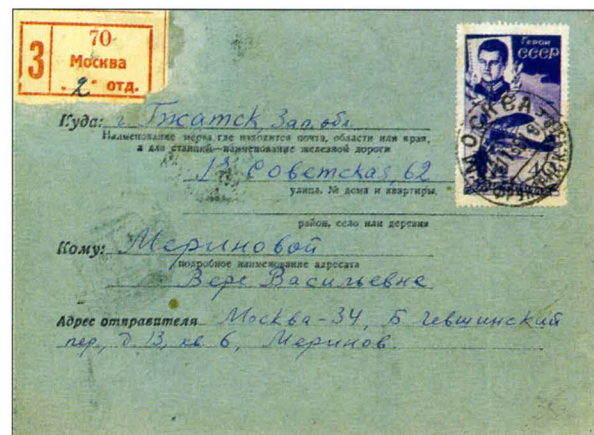 3
70
Москва
„2“ отд.
Герои
СССР
МОСКВА
Куда: г. Гжатск, Зап. обл.
Наименование места где находится почта, области или края,
а для станций—наименование железной дороги
1я Советская, 62
улица, № дома и квартиры,
район, село или деревня
Кому: Мериновой
подробное наименование адресата
Вере Васильевне
Адрес отправителя Москва-34, Б Левшинский
пер, д 13, кв 6, Меринов.